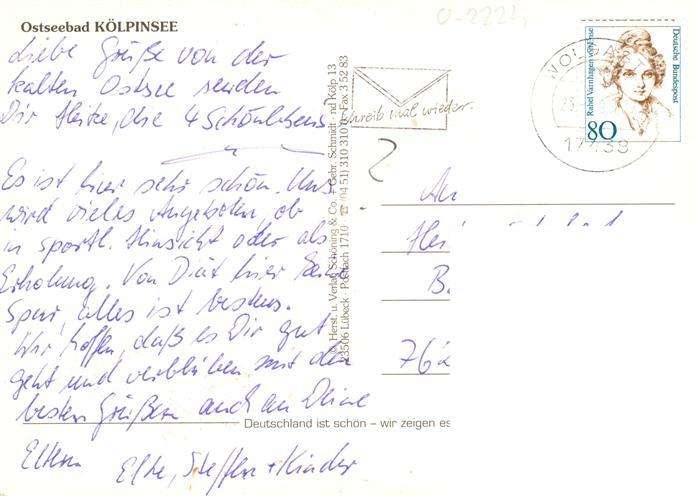 Ostseebad KÖLPINSEE
Liebe Grüße von der
kalten Ostsee senden
Dir Heike, die 4 Schönlebens
Es ist hier sehr schön. Uns
wird vieles angeboten, ob
in sportl. Hinsicht oder als
Erholung. Von Diät hier keine
Spur, alles ist bestens.
Wir hoffen, daß es Dir gut
geht und verbleiben mit den
besten Grüßen auch an Deine
Eltern
Elke, Steffen + Kinder
© Herst. u. Verlag Schöning & Co. + Gebr. Schmidt
23506 Lübeck · Postfach 1710 · ☎ (04 51) 310 310 · Fax 3 52 83
Schreib mal wieder.
Deutsche Bundespost
Rahel Varnhagen von Ense
80
17438
An
B.
76
Deutschland ist schön – wir zeigen es